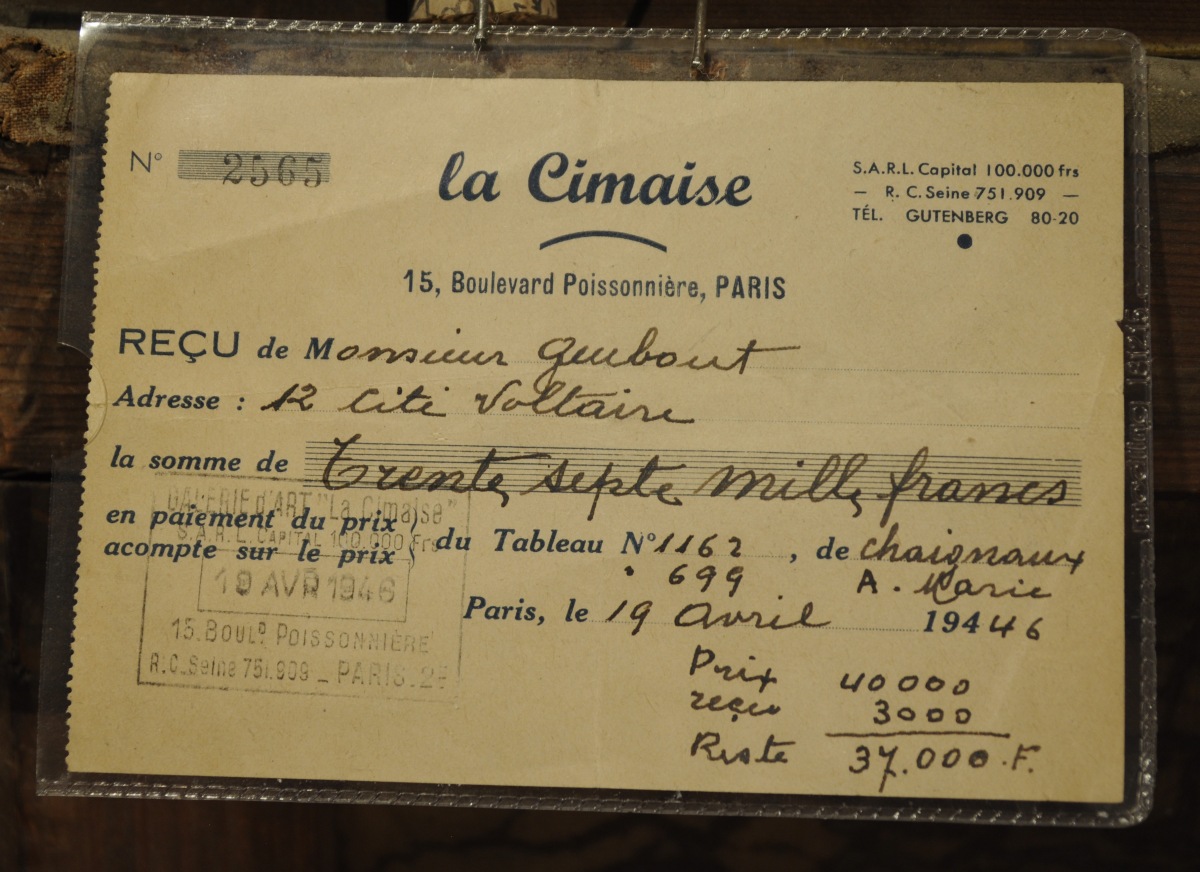 N° 2565
la Cimaise
S.A.R.L. Capital 100.000 frs
— R. C. Seine 751.909 —
TÉL. GUTENBERG 80-20
15, Boulevard Poissonnière, PARIS
REÇU de Monsieur Guibout
Adresse : 12 Cité Voltaire
la somme de Trente septe mille francs
en paiement du prix
acompte sur le prix
du Tableau N° 1162 , de Chaignaux
699 A. Marie
Paris, le 19 Avril 194 46
GALERIE d'ART "La Cimaise"
S.A.R.L. CAPITAL 100.000 Frs
19 AVR 1946
15. BOULD POISSONNIÈRE
R.C. Seine 751.909 _ PARIS. 2E
Prix 40000
reçu 3000
Reste 37.000.F.